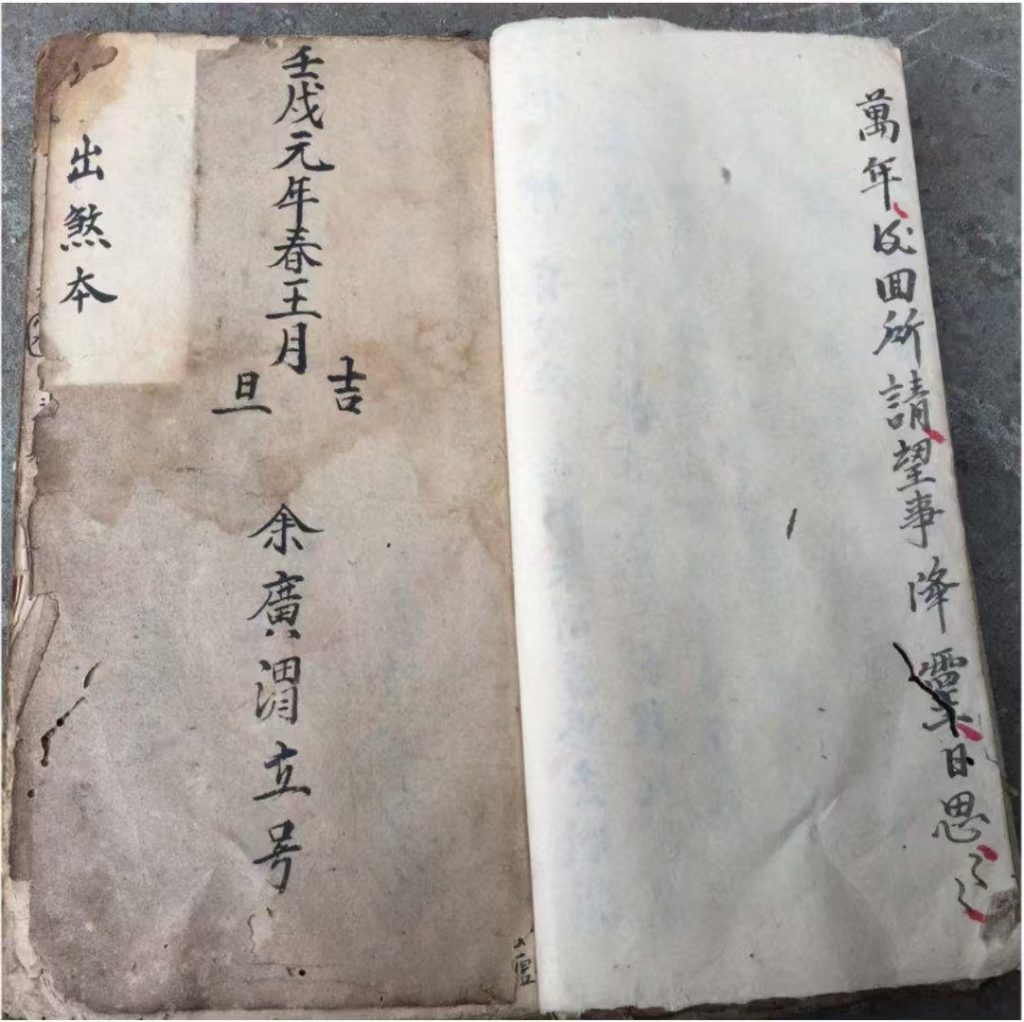 萬年 回所請望事降靈 日思
壬戌元年春王月
吉旦
余廣渭立号
出煞本